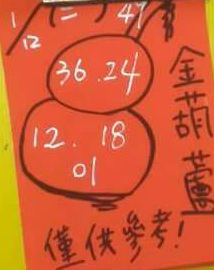 1/12 (二) 47
36.24
12. 18
01
金葫蘆
僅供參考!